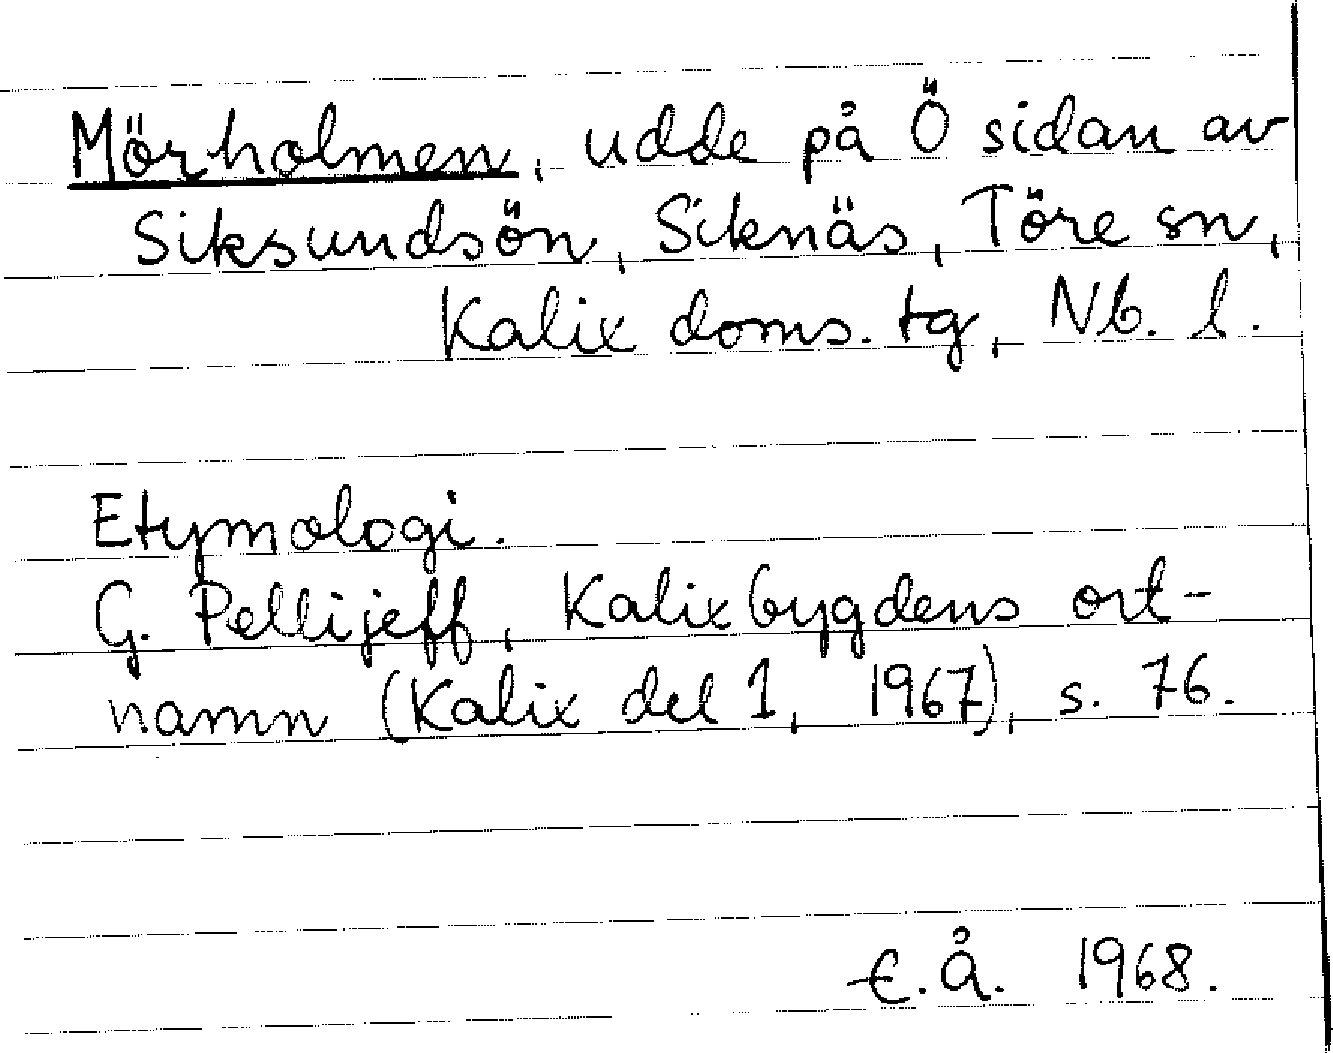 Mörholmen, udde på Ö sidan av
Siksundsön, Siknäs, Töre sn,
Kalix doms. tg, Nb. l.
Etymologi.
G. Pellijeff, Kalixbygdens ort-
namn (Kalix del 1, 1967), s. 76.
E.Å. 1968.